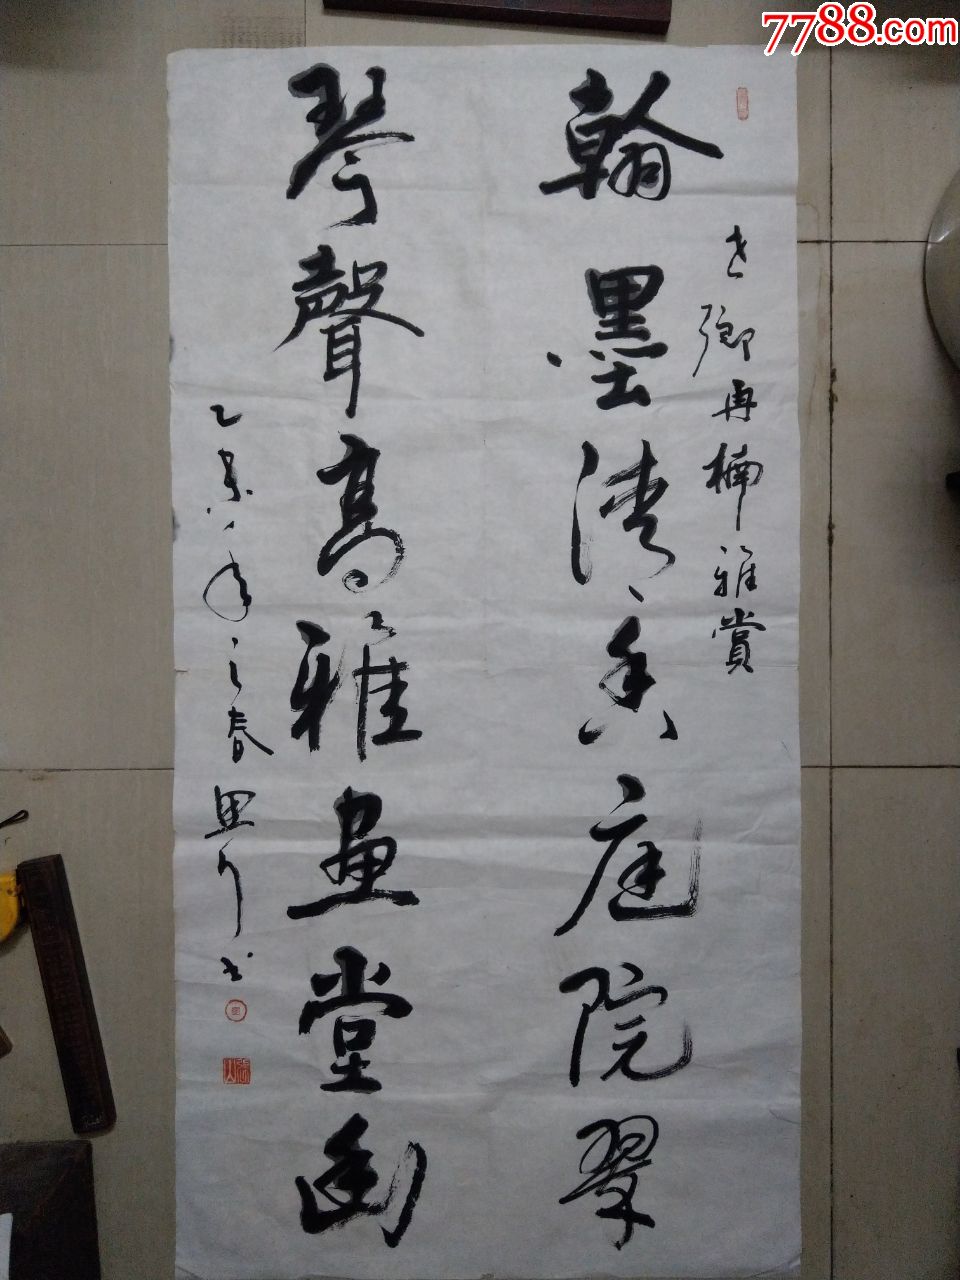 7788.com
翰墨清香庭院翠
卿再楠雅赏
琴聲高雅画堂幽
乙未年之春思行书